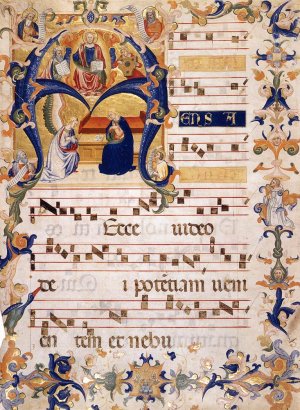 ENS A
Ecce uideo
de i potētiam ueni
en tem et nebu